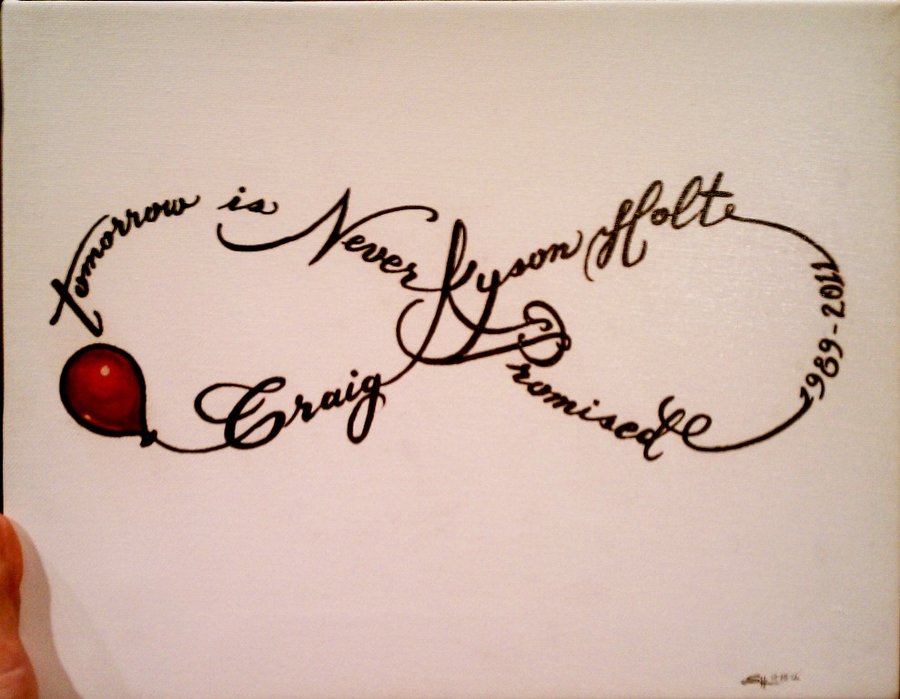 tomorrow is Never Promised
Craig Kyson Holte
1989-2011